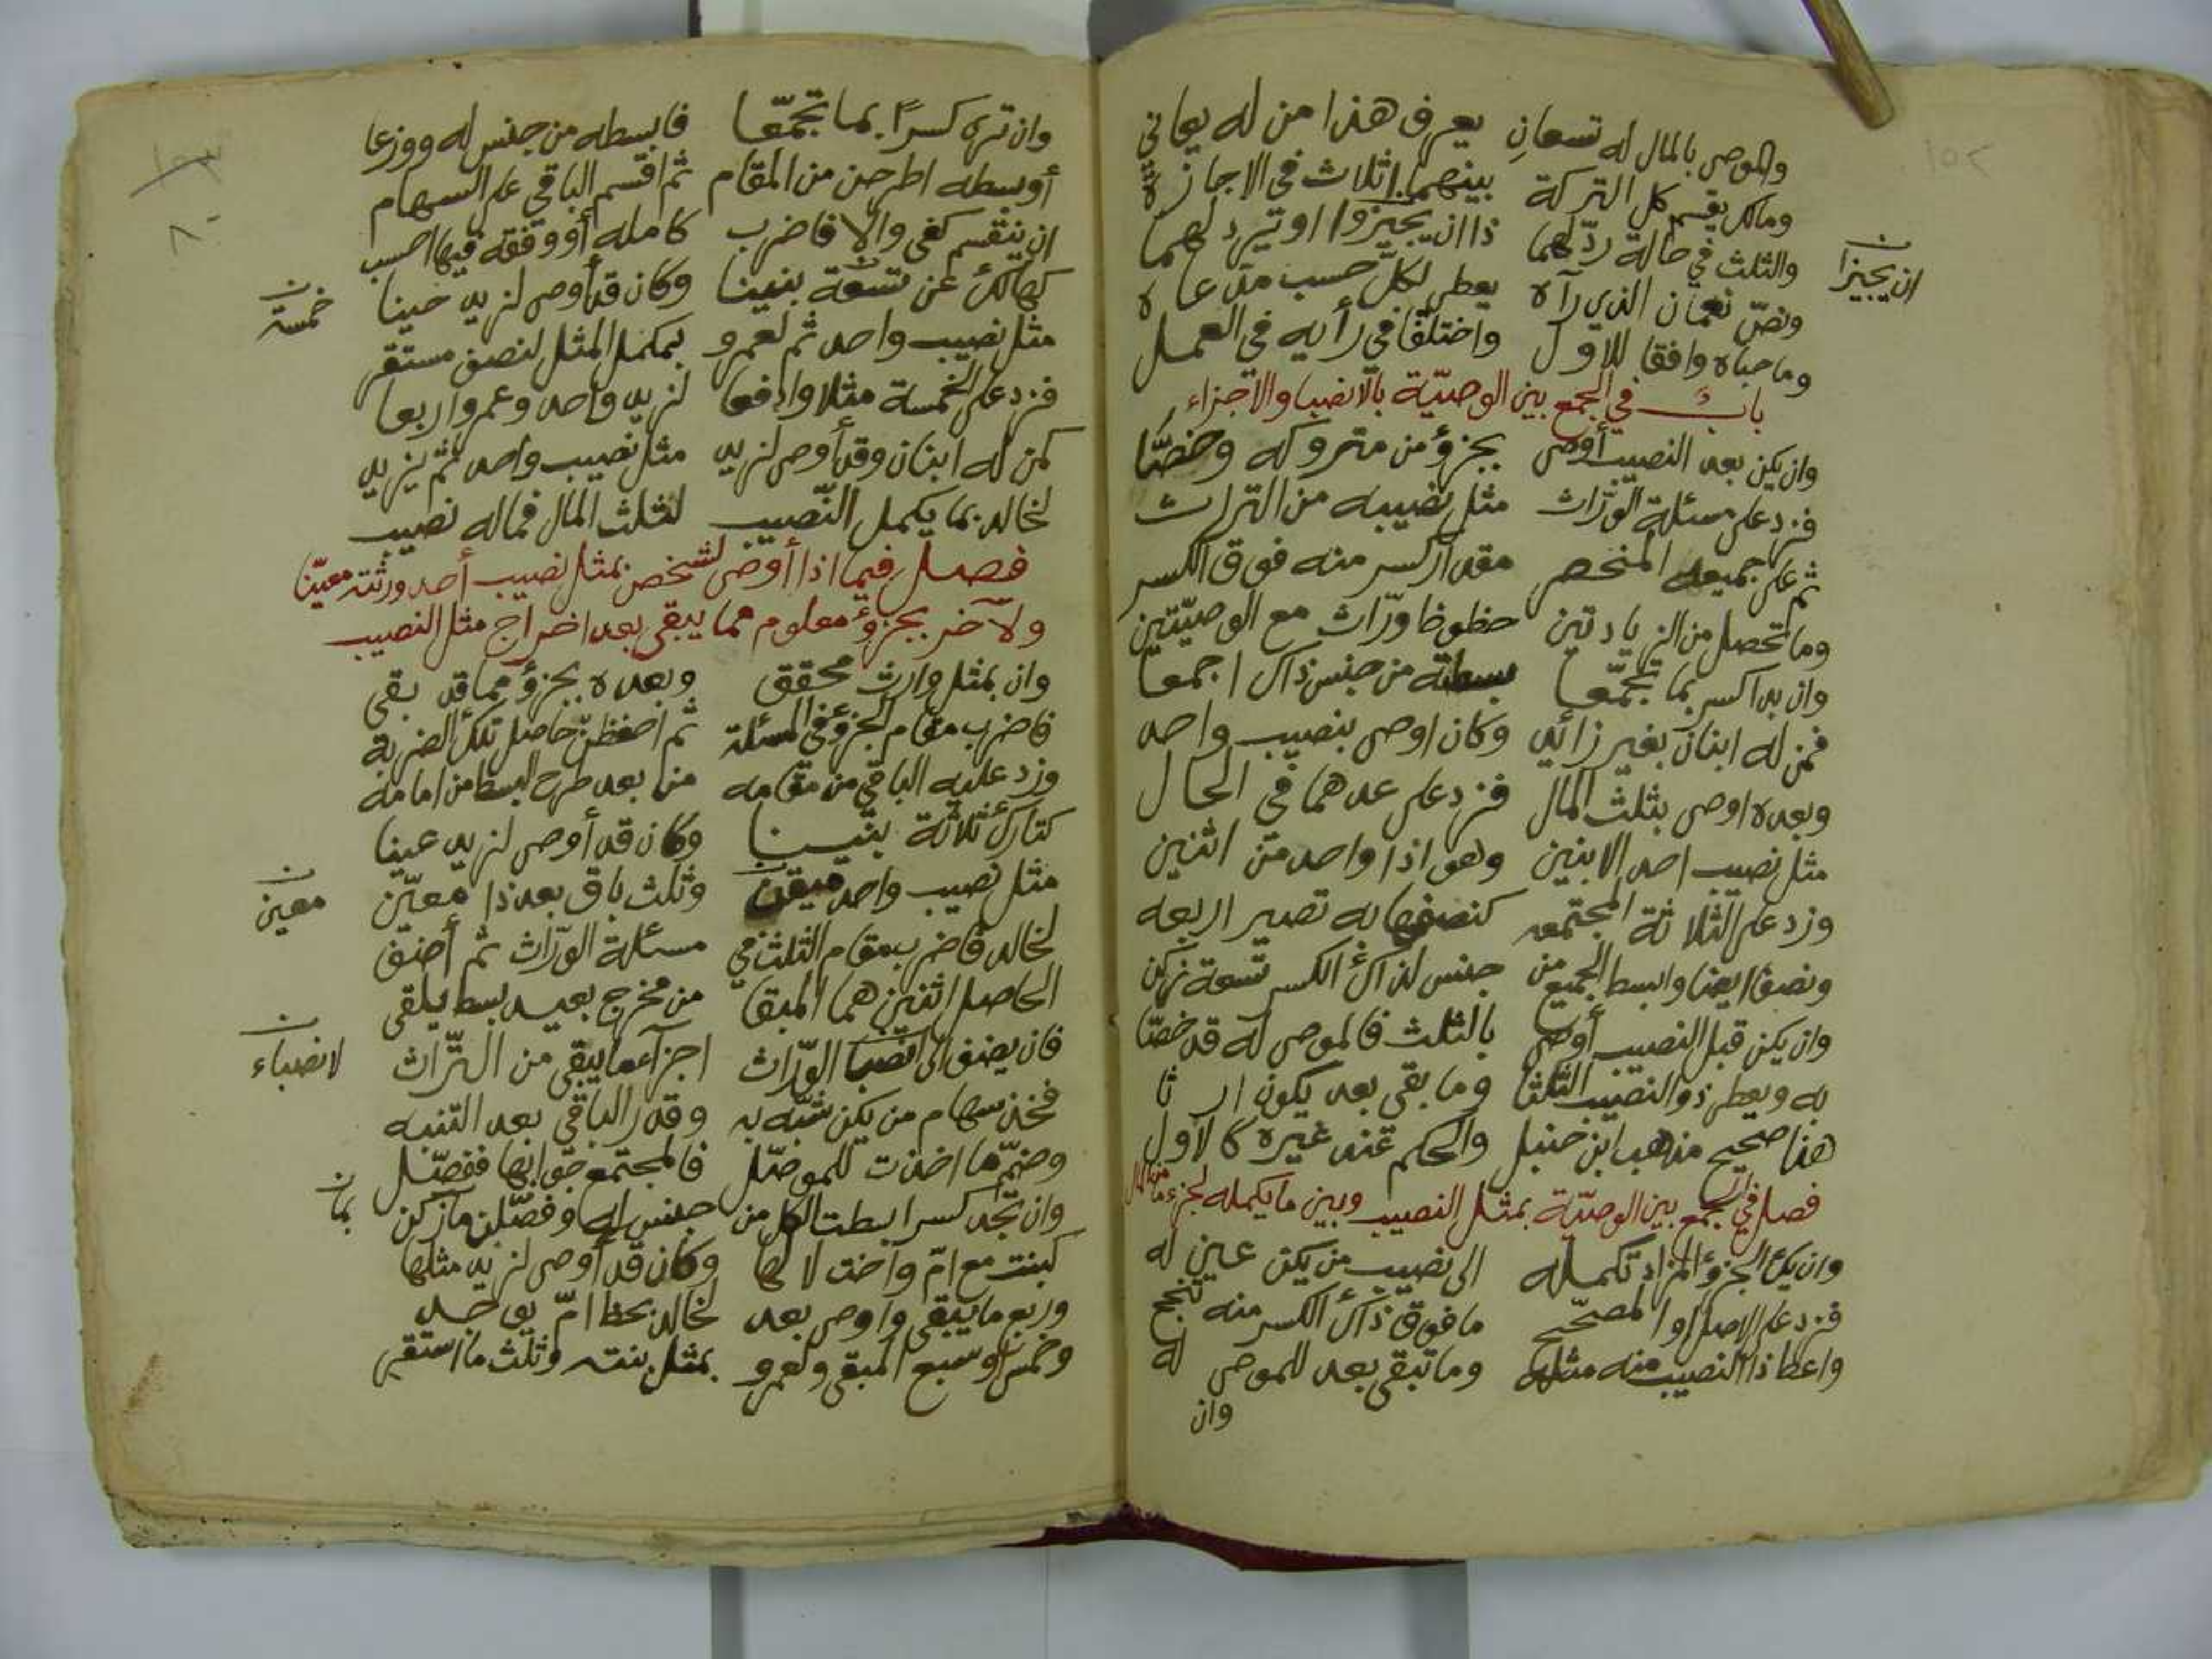 والموصى بالمال له تسعان يعرف هذا من له يعاني
ومالك يقسم كل التركة بينهما اثلاث في الاجازة
والثلث في حالة ردّ لهما ذا ان يجيزوا او ترد لهما
ان يجيزا
ونصّ نعمان الذي رآه يعطى لكلّ حسب مدعاه
وما حباه وافقا للاول واختلفا في رأيه في العمل
باب في الجمع بين الوصيّة بالانصبا والاجزاء
وان يكن بعد النصيب أوصى بجزؤ من متروكه وخصّا
فزد على مسئلة الورّاث مثل نصيبه من التراث
ثم على جميعه المنحصر مقدار كسر منه فوق الكسر
وما تحصل من الزيادتين حظوظ ورّاث مع الوصيّتين
وان بدا كسر بما تجمّعا بسطته من جنس ذاك اجمعا
فمن له ابنان بغير زائد وكان اوصى بنصيب واحد
وبعده اوصى بثلث المال فزد على عدهما في الحال
مثل نصيب احد الابنين وهو اذا واحد من اثنين
وزد على الثلاثة المجتمعه كنصفها به تصير اربعه
ونصف ايضا وابسط الجميع من جنس لذاك الكسر تسعة زكن
وان يكن قبل النصيب أوصى بالثلث فالموصى له قد خصّا
به ويعطى ذو النصيب الثلثا وما بقى بعد يكون ارثا
هذا صحيح مذهب ابن حنبل والحكم عند غيره كالاول
فصل في الجمع بين الوصيّة بمثل النصيب وبين ما يكمله لجزء ما من المال
وان يك الجزؤ المزاد تكمله الى نصيب من يكن عين له
فزد على الاصل او المصحّح ما فوق ذاك الكسر منه تنجح
واعط ذا النصيب منه مثله وما تبقى بعد للموصى له
وان
وان تره كسرًا بما تجمّعا فابسطه من جنس له ووزعا
أو بسطه اطرحن من المقام ثم اقسم الباقي على السهام
ان ينقسم كفى والا فاضرب كامله أو وفقه فيها احسب
كهالك عن تسعة بنينا وكان قد أوصى لزيد حينا
خمسة
مثل نصيب واحد ثم لعمرو بمكمل المثل لنصف مستقر
فزد على الخمسة مثلا وادفعا لزيد واحد وعمرو اربعا
كمن له ابنان وقد أوصى لزيد مثل نصيب واحد ثم يزيد
لخالد بما يكمل النّصيب لثلث المال فما له نصيب
فصل فيما اذا أوصى لشخص بمثل نصيب أحد ورثته معيّنا
ولآخر بجزؤ معلوم مما يبقى بعد اخراج مثل النصيب
وان بمثل وارث محقق وبعده بجزؤ مما قد بقى
فاضرب مقام الجزؤ في المسئلة ثم احفظن حاصل تلك الضربة
وزد عليه الباقي من مقامه من بعد طرح البسط من امامه
كتارك ثلاثة بنينا وكان قد أوصى لزيد عينا
مثل نصيب واحد وثلث باق بعد ذا معيّن
معين
لخالد فاضرب مقام الثلث في مسئلة الورّاث ثم أضف
الحاصل اثنين هما المبقا من مخرج بعيد بسط يلقى
فان يضف الى انصبا الورّاث اجزآء ما يبقى من التّراث
لانصباء
فخذ سهام من يكن شبّه به وقدر الباقي بعد التنبه
وضمّ ما اخذت للموصّل فالمجتمع جوابها ففصّل
وان تجد كسرا بسطت الكل من جنس له وفصّلن ما زكن
بما
كبنت مع امّ واخت لا لها وكان قد أوصى لزيد مثلها
وربع ما يبقى واوصى بعد لخالد بحظ امّ يوجد
وخمس وسبع المبقى ولعمرو بمثل بنت وثلث ما استقر